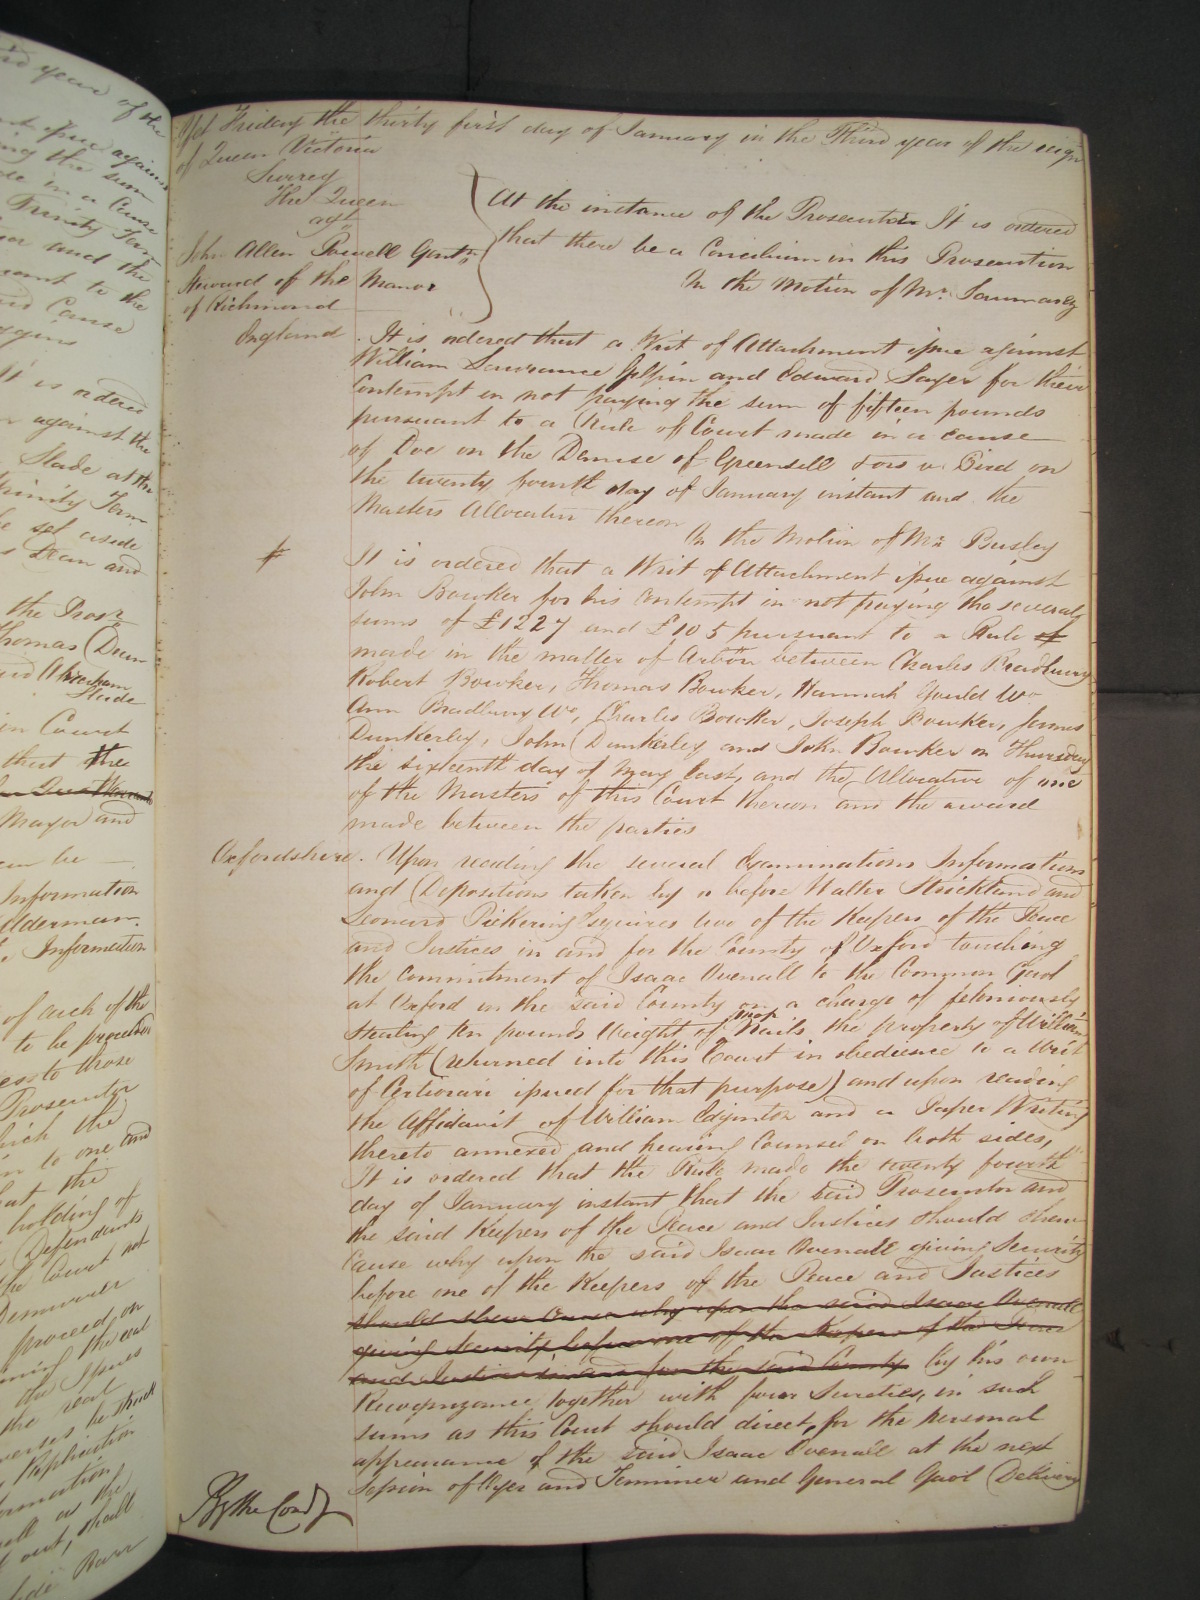 rd year of the
issue against
ing the sum
de in a Cause
Trinity Term
and the
to the
said Cause
It is ordered
against the
Slade at the
Trinity Term
be set aside
and
the Prosr
Thomas Dunn
and Abraham
Slade
in Court
that the
Mayor and
can be
Information
Alderman
Information
of each of the
to be proceeded
to those
Prosecutor
which the
in to one and
that the
holding of
Defendants
the Court not
Demurrer
proceed, on
the real
be struck
Replication
as the
out, shall
Yet Friday the thirty first day of January in the Third year of the reign
of Queen Victoria
Surrey
The Queen
agt
John Allen Powell Gentn
Steward of the Manor
of Richmond
At the instance of the Prosecutor It is ordered
that there be a Concilium in this Prosecution
On the Motion of Mr. Saumarez
England. It is ordered that a Writ of Attachment issue against
William Lawrance Gilpin and Edward Sayer for their
Contempt in not paying the sum of fifteen pounds
pursuant to a Rule of Court made in a cause
of Doe on the Demise of Greensill & ors v. Bird on
the twenty fourth day of January instant and the
Masters Allocatur thereon
On the Motion of Mr. Busby
It is ordered that a Writ of Attachment issue against
John Bowker for his Contempt in not paying the several
sums of £1227 and £105 pursuant to a Rule of
made in the matter of Arbon between Charles Bradbury
Robert Bowker, Thomas Bowker, Hannah Gould Wo
Ann Bradbury Wo, Charles Bowker, Joseph Bowker, James
Dunkerley, John Dunkerley and John Bowker on Thursday
the sixteenth day of May last, and the Allocatur of one
of the Masters of this Court thereon and the award
made between the parties
Oxfordshire. Upon reading the several Examinations Informations
and Depositions taken by & before Walter Strickland and
Leonard Pickering Esquires two of the Keepers of the Peace
and Justices in and for the County of Oxford touching
the commitment of Isaac Ovenall to the Common Gaol
at Oxford in the said County on a charge of feloniously
stealing ten pounds weight of Mop Nails the property of William
Smith (returned into this Court in obedience to a Writ
of Certiorari issued for that purpose) and upon reading
the Affidavit of William Edginton and a Paper Writing
thereto annexed and hearing Counsel on both sides,
It is ordered that the Rule made the twenty fourth
day of January instant that the said Prosecutor and
the said Keepers of the Peace and Justices should shew
Cause why upon the said Isaac Ovenall giving Security
before one of the Keepers of the Peace and Justices
should shew Cause why upon the said Isaac Ovenall
giving Security before one of the Keepers of the Peace
and Justices in and for the said County by his own
Recognizance together with four Sureties, in such
sums as this Court should direct, for the personal
appearance of the said Isaac Ovenall at the next
Session of Oyer and Terminer and General Gaol Delivery
By the Court